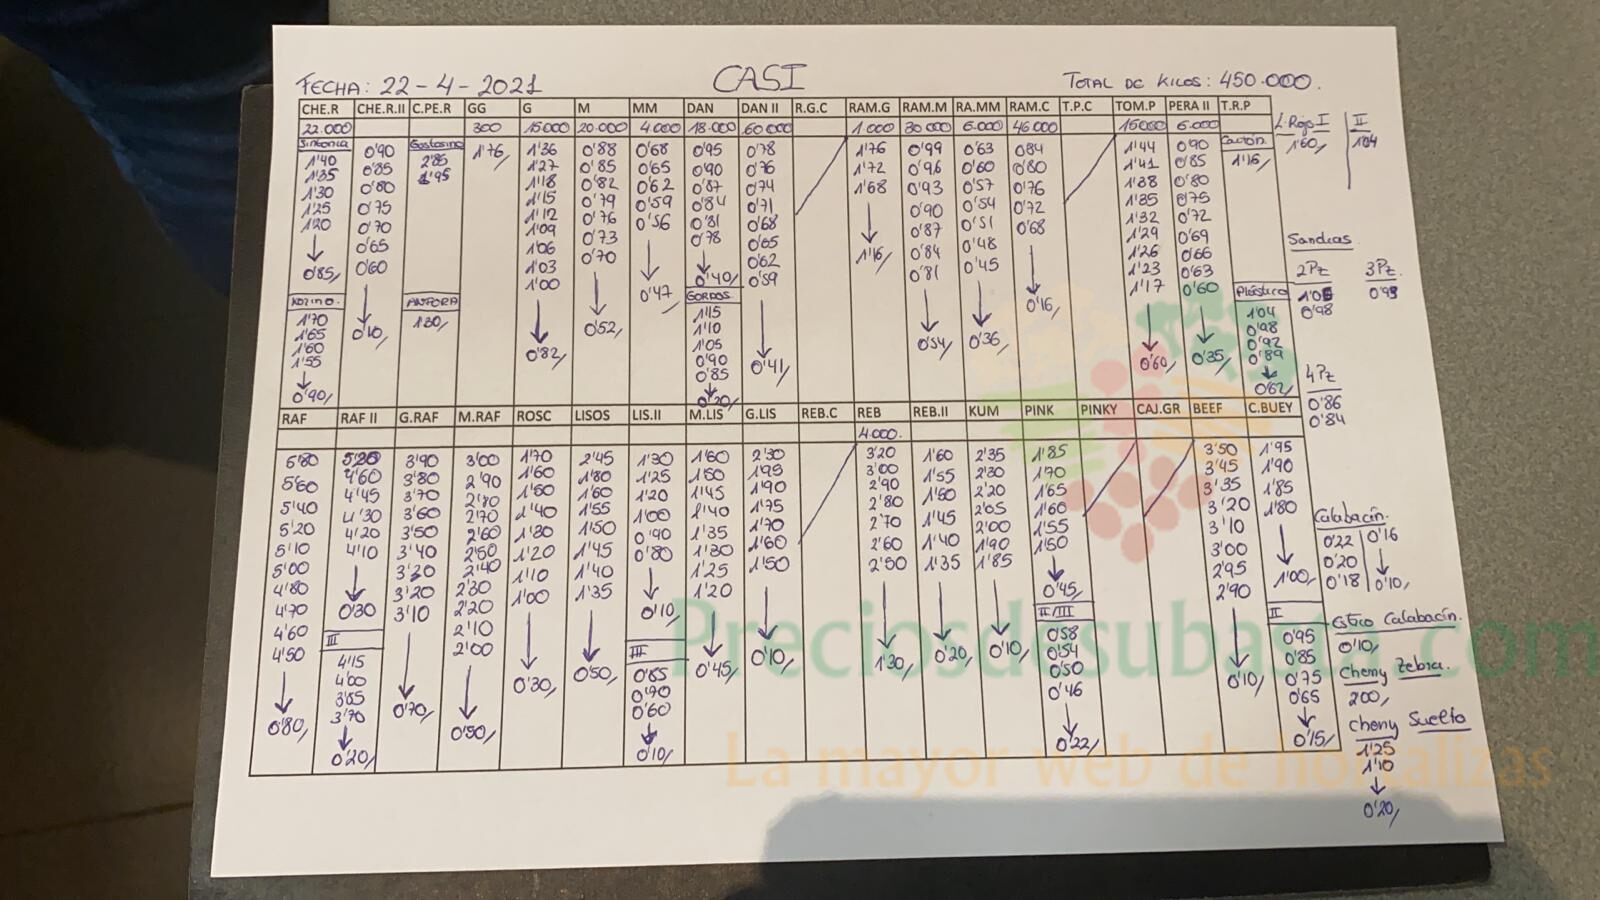 FECHA: 22-4-2021 CASI TOTAL DE KILOS: 450.000.
CHE.R CHE.R.II C.PE.R GG G M MM DAN DAN II R.G.C RAM.G RAM.M RA.MM RAM.C T.P.C TOM.P PERA II T.R.P L.Rojo I II
22.000 300 15.000 20.000 4.000 18.000 60.000 1.000 30.000 6.000 46.000 15.000 6.000 1'60/ 1'04
Sinfonia 0'90 Gostosino 1'76/ 1'36 0'88 0'68 0'95 0'78 1'76 0'99 0'63 0'84 1'44 0'90 Cartón
1'40 0'85 2'85 1'27 0'85 0'65 0'90 0'76 1'72 0'96 0'60 0'80 1'41 0'85 1'16/
1'35 0'80 1'95 1'18 0'82 0'62 0'87 0'74 1'68 0'93 0'57 0'76 1'38 0'80
1'30 0'75 1'15 0'79 0'59 0'84 0'71 ↓ 0'90 0'54 0'72 1'35 0'75
1'25 0'70 1'12 0'76 0'56 0'81 0'68 1'16/ 0'87 0'51 0'68 1'32 0'72
1'20 0'65 1'09 0'73 ↓ 0'78 0'65 0'84 0'48 ↓ 1'29 0'69
↓ 0'60 1'06 0'70 0'47/ ↓ 0'62 0'81 0'45 0'16/ 1'26 0'66
0'85/ ↓ 1'03 ↓ 0'40/ 0'59 ↓ ↓ 1'23 0'63
0'10/ 1'00 0'52/ ↓ 0'54/ 0'36/ 1'17 0'60
↓ 0'41/ ↓ ↓
0'82/ 0'60/ 0'35/
1'70 ANFORA GORDOS Plástico
1'65 1'30/ 1'15 1'04
1'60 1'10 0'98
1'55 1'05 0'92
↓ 0'90 0'89
0'90/ 0'85 ↓
↓ 0'62/
0'20/
Sandias
2Pz 3Pz.
0'98 0'93
4Pz
0'86
0'84
RAF RAF II G.RAF M.RAF ROSC LISOS LIS.II M.LIS G.LIS REB.C REB REB.II KUM PINK PINKY CAJ.GR BEEF C.BUEY
4.000.
5'80 5'20 3'90 3'00 1'70 2'45 1'30 1'60 2'30 3'20 1'60 2'35 1'85 3'50 1'95
5'60 4'60 3'80 2'90 1'60 1'80 1'25 1'50 1'95 3'00 1'55 2'30 1'70 3'45 1'90
5'40 4'45 3'70 2'80 1'50 1'60 1'20 1'45 1'90 2'90 1'50 2'20 1'65 3'35 1'85
5'20 4'30 3'60 2'70 1'40 1'55 1'00 1'40 1'75 2'80 1'45 2'05 1'60 3'20 1'80
5'10 4'20 3'50 2'60 1'30 1'50 0'90 1'35 1'70 2'70 1'40 2'00 1'55 3'10 ↓
5'00 4'10 3'40 2'50 1'20 1'45 0'80 1'30 1'60 2'60 1'35 1'90 1'50 3'00 1'00/
4'80 ↓ 3'30 2'40 1'10 1'40 ↓ 1'25 1'50 2'50 ↓ 1'85 ↓ 2'95
4'70 0'30 3'20 2'30 1'00 1'35 0'10/ 1'20 ↓ ↓ 0'20/ ↓ 0'45/ 2'90
4'60 3'10 2'20 ↓ ↓ ↓ 0'10/ 1'30/ 0'10/ ↓
4'50 ↓ 2'10 0'30/ 0'50/ 0'45/ 0'10/
↓ 0'70/ 2'00
0'80/ ↓
0'50/
III III II/III II
4'15 0'85 0'58 0'95
4'00 0'54 0'85
3'85 0'60 0'50 0'75
3'70 ↓ 0'46 0'65
↓ 0'10/ ↓ ↓
0'20/ 0'22/ 0'15/
Calabacín.
0'22 0'16
0'20 ↓
0'18 0'10/
Calabacín.
0'10/
Cherry Zebra.
200/
Cherry Suelto
1'25
1'10
↓
0'20/
Preciosdesubasta.com
La mayor web de hortalizas